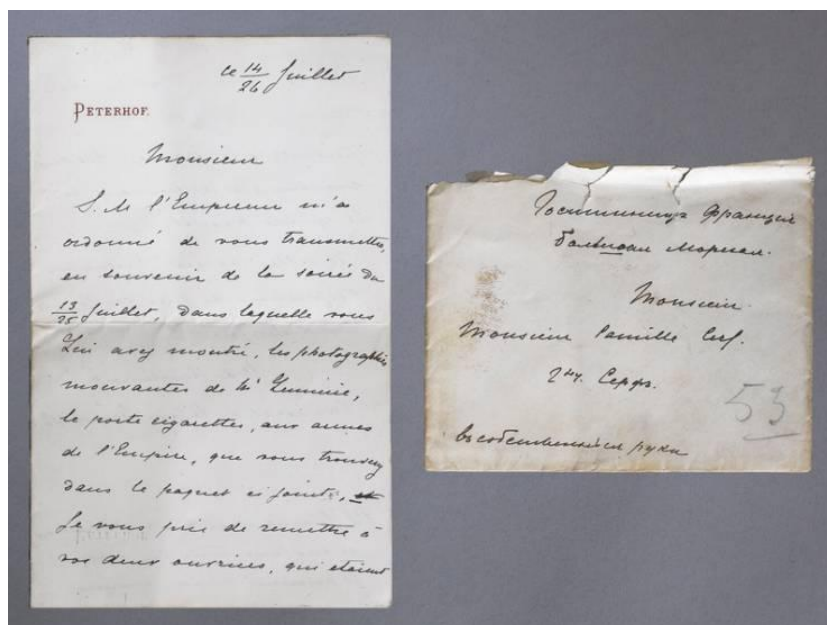 ce 14/26 Juillet
PETERHOF.
Monsieur
S. M l'Empereur m'a
ordonné de vous transmettre,
en souvenir de la soirée du
13/25 Juillet, dans laquelle vous
Lui avez montré, les photographies
mouvantes de Mr Lumière,
le porte cigarettes, aux armes
de l'Empire, que vous trouverez
dans le paquet ci joint,
Je vous prie de remettre à
vos deux ouvriers, qui etaient
Гостинница Франция
Большая Морская.
Monsieur
Monsieur Camille Cerf.
Гну. Серфъ.
въ собственныя руки
53